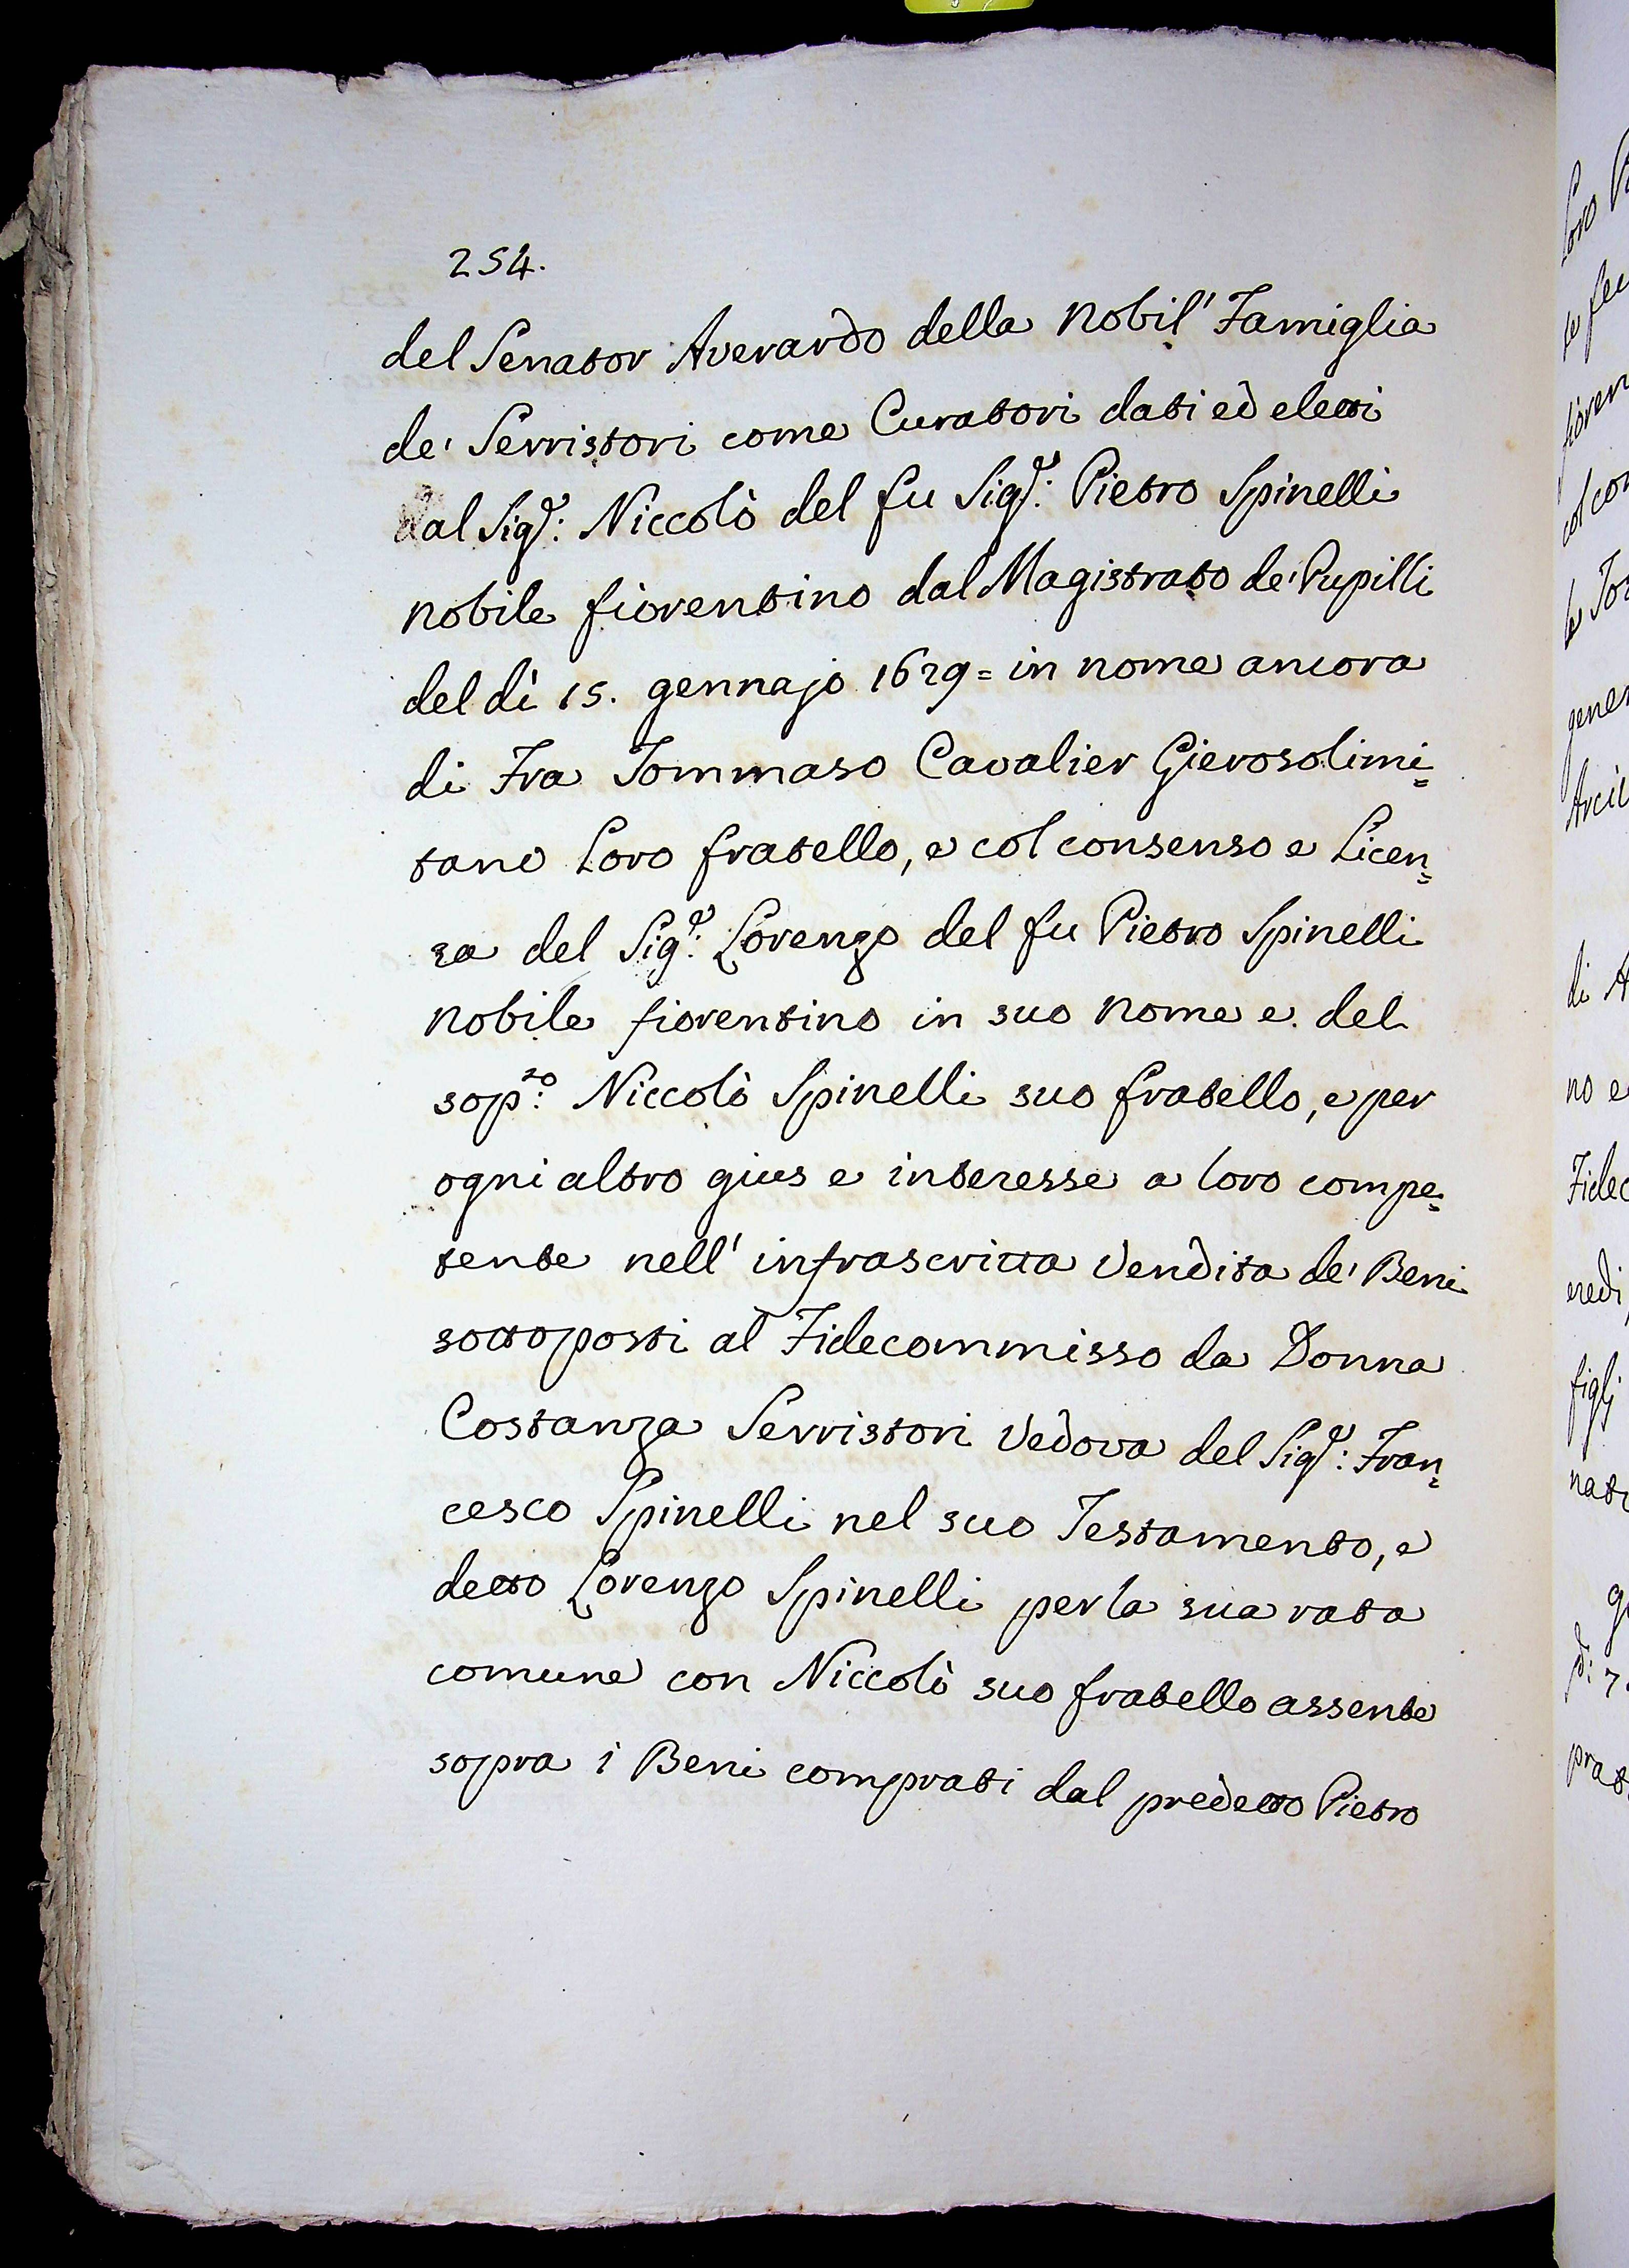 254.
del Senator Averardo della Nobil' Famiglia
de' Serristori come Curatori dati ed eletti
dal Sig.r: Niccolò del fu Sig.r: Pietro Spinelli
Nobile fiorentino dal Magistrato de' Pupilli
del dì 15. gennajo 1629 = in nome ancora
di Fra Tommaso Cavalier Gierosolimi=
tano Loro fratello, e col consenso e Licen=
za del Sig.r: Lorenzo del fu Pietro Spinelli
Nobile fiorentino in suo Nome e del
sop.to: Niccolò Spinelli suo fratello, e per
ogni altro gius e interesse a loro compe=
tente nell' infrascritta Vendita de' Beni
sottoposti al Fidecommisso da Donna
Costanza Serristori Vedova del Sig.r: Fran=
cesco Spinelli nel suo Testamento, e
detto Lorenzo Spinelli per la sua rata
comune con Niccolò suo fratello assente
sopra i Beni comprati dal predetto Pietro